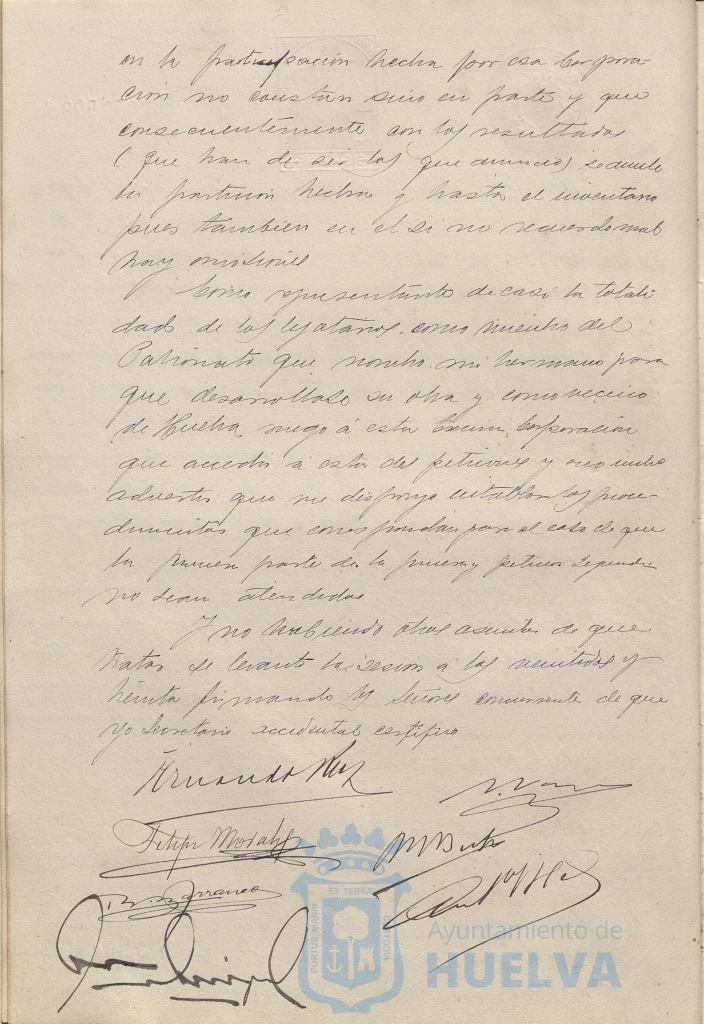 en la participación hecha por esa Corpora-
ción no constan sino en parte y que
consecuentemente con los resultados
(que han de ser los que anuncio) se anule
la partición hecha y hasta el inventario
pues también en el si no recuerdo mal
hay omisiones
Como representante de casi la totali
dad de los legatarios, como miembro del
Patronato que nombró mi hermano para
que desarrollase su obra y como vecino
de Huelva, ruego á esta Excma. Corporación
que acceda á estas dos peticiones y
advertir que me dispongo entablar los proce-
dimientos que correspondan para el caso de que
la primera parte de la primera petición y segunda
no sean atendidas
Y no habiendo otros asuntos de que
tratar se levantó la sesion á las veintidos y
treinta firmando los Señores concurrentes de que
yo Secretario accidental certifico
Felipe Morales
B. Barranco
PORTUS MARIS ET TERRAE CUSTODIA
Ayuntamiento de
HUELVA